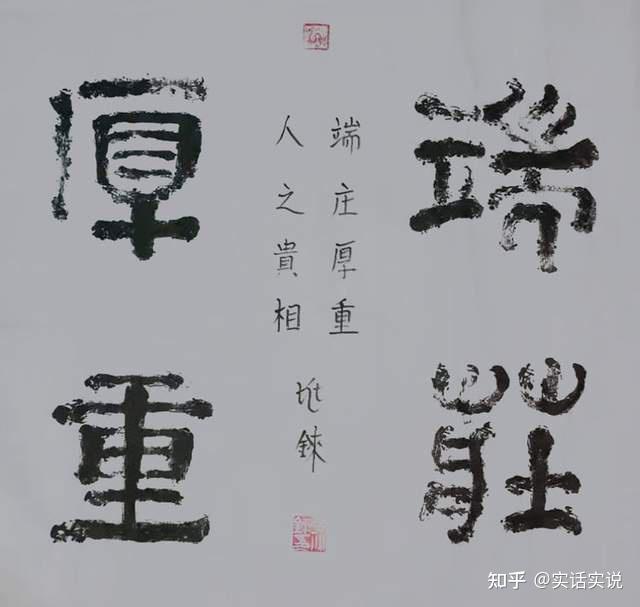 端莊
端庄厚重
人之貴相
厚重
知乎 @实话实说